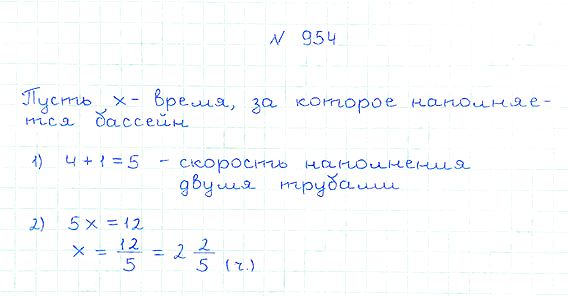 № 954
Пусть x - время, за которое наполняе-
тся бассейн
1) 4 + 1 = 5 - скорость наполнения
двумя трубами
2) 5x = 12
x = 12/5 = 2 2/5 (ч.)